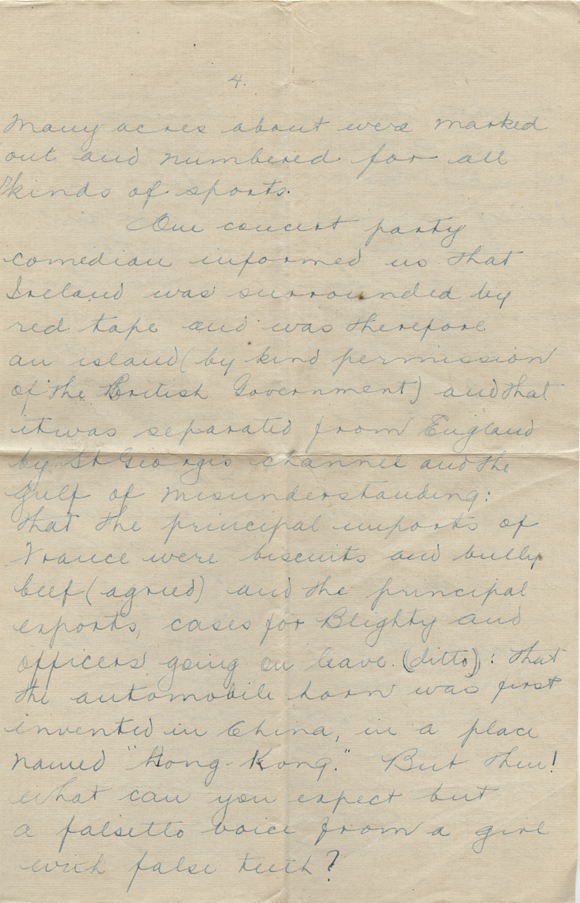 4.
Many acres about were marked
out and numbered for all
kinds of sports.
Our concert party
comedian informed us that
Ireland was surrounded by
red tape and was therefore
an island (by kind permission
of the British Government) and that
it was separated from England
by St George's channel and the
gulf of misunderstanding:
that the principal imports of
France were biscuits and bully
beef (agried) and the principal
exports, cases for Blighty and
officers going on leave. (ditto): that
the automobile horn was first
invented in China, in a place
named "Hong-Kong." But then!
what can you expect but
a falsetto voice from a girl
with false teeth?